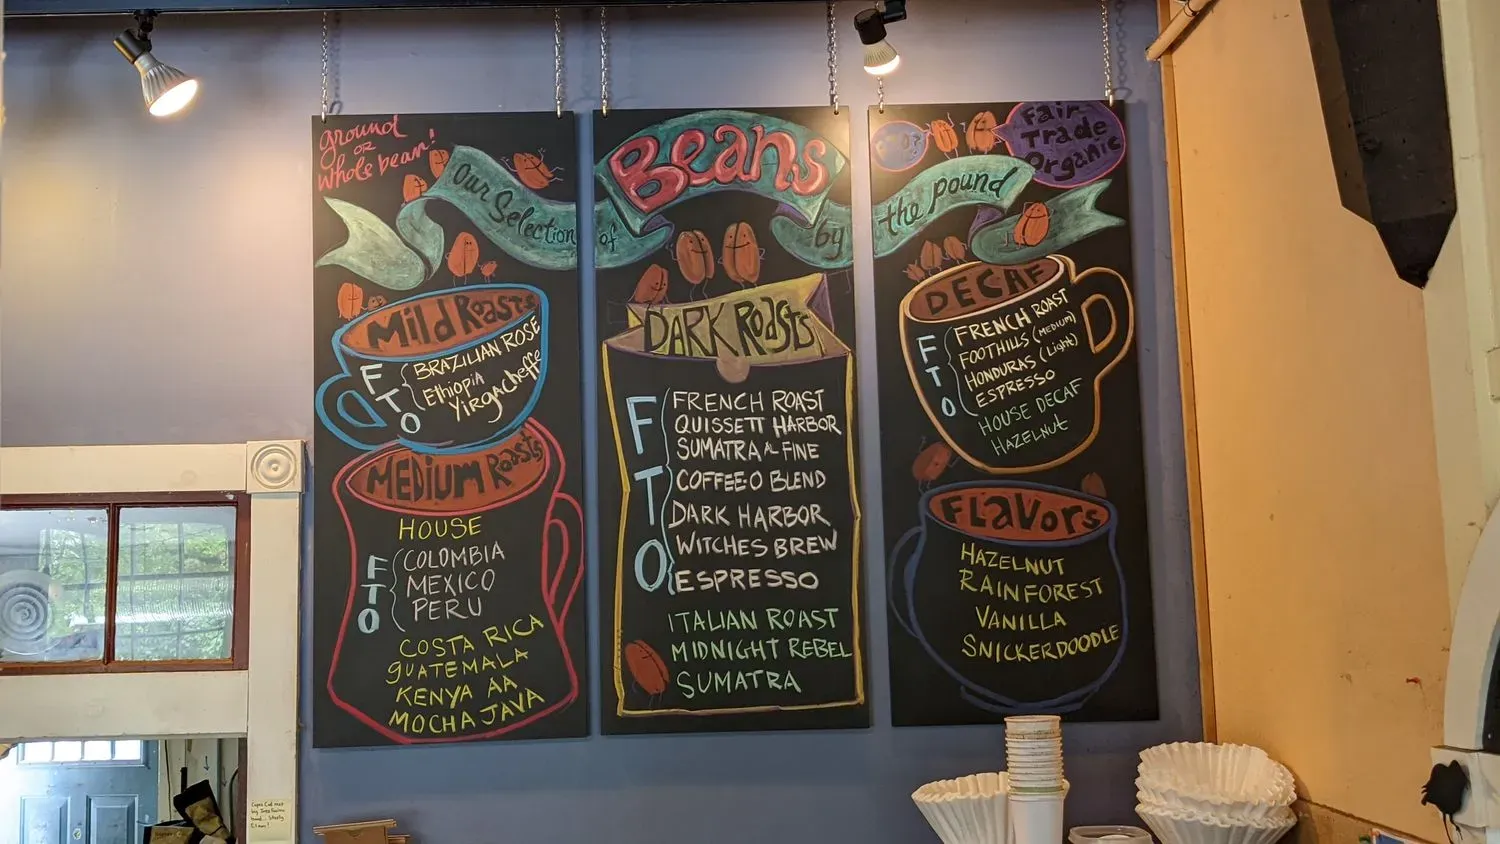 ground
or
whole bean!
Our Selection of
Beans
by the pound
FTO?
Fair
Trade
Organic
Mild Roasts
FTO
BRAZILIAN ROSE
Ethiopia
Yirgacheffe
MEDIUM Roasts
HOUSE
FTO
COLOMBIA
MEXICO
PERU
COSTA RICA
GUATEMALA
KENYA AA
MOCHA JAVA
DARK Roasts
FTO
FRENCH ROAST
QUISSETT HARBOR
SUMATRA FINE
COFFEE·O BLEND
DARK HARBOR
WITCHES BREW
ESPRESSO
ITALIAN ROAST
MIDNIGHT REBEL
SUMATRA
DECAF
FTO
FRENCH ROAST
FOOTHILLS (MEDIUM)
HONDURAS (Light)
ESPRESSO
HOUSE DECAF
HAZELNUT
FLavors
HAZELNUT
RAINFOREST
VANILLA
SNICKERDOODLE